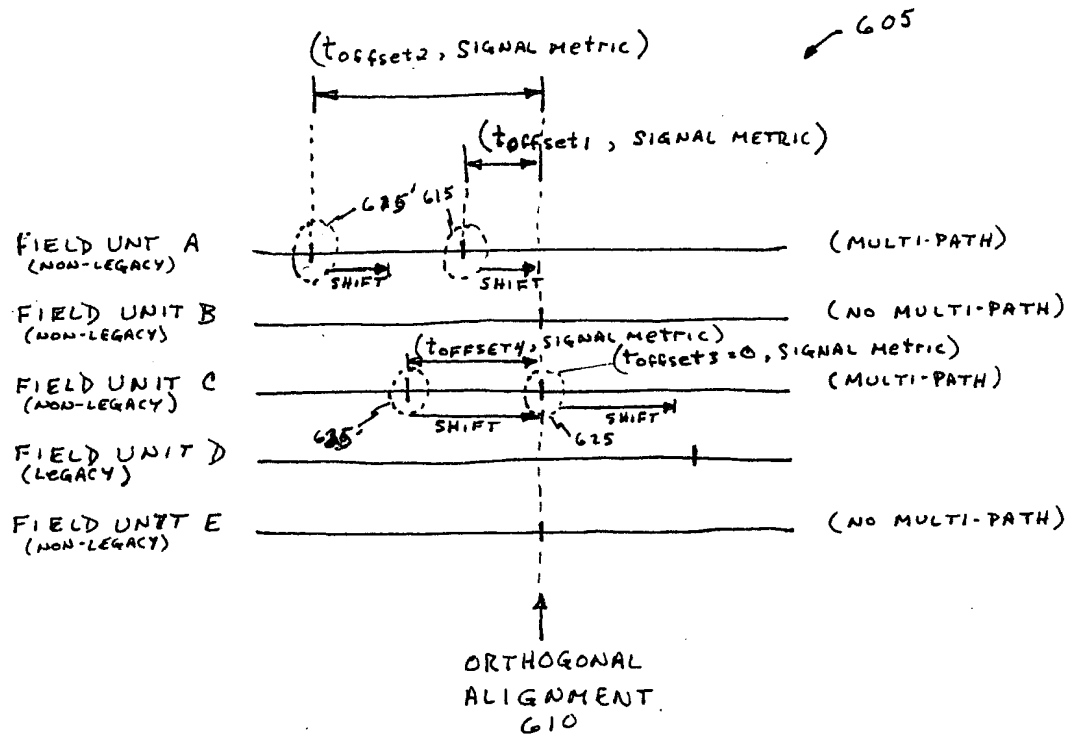 605
(toffset2, SIGNAL METRIC)
(toffset1, SIGNAL METRIC)
615
FIELD UNT A
(NON-LEGACY)
SHIFT
SHIFT
(MULTI-PATH)
FIELD UNIT B
(NON-LEGACY)
(NO MULTI-PATH)
(tOFFSET4, SIGNAL METRIC)
(toffset3=0, SIGNAL METRIC)
FIELD UNIT C
(NON-LEGACY)
(MULTI-PATH)
SHIFT
SHIFT
625
FIELD UNIT D
(LEGACY)
FIELD UNIT E
(NON-LEGACY)
(NO MULTI-PATH)
ORTHOGONAL
ALIGNMENT
610